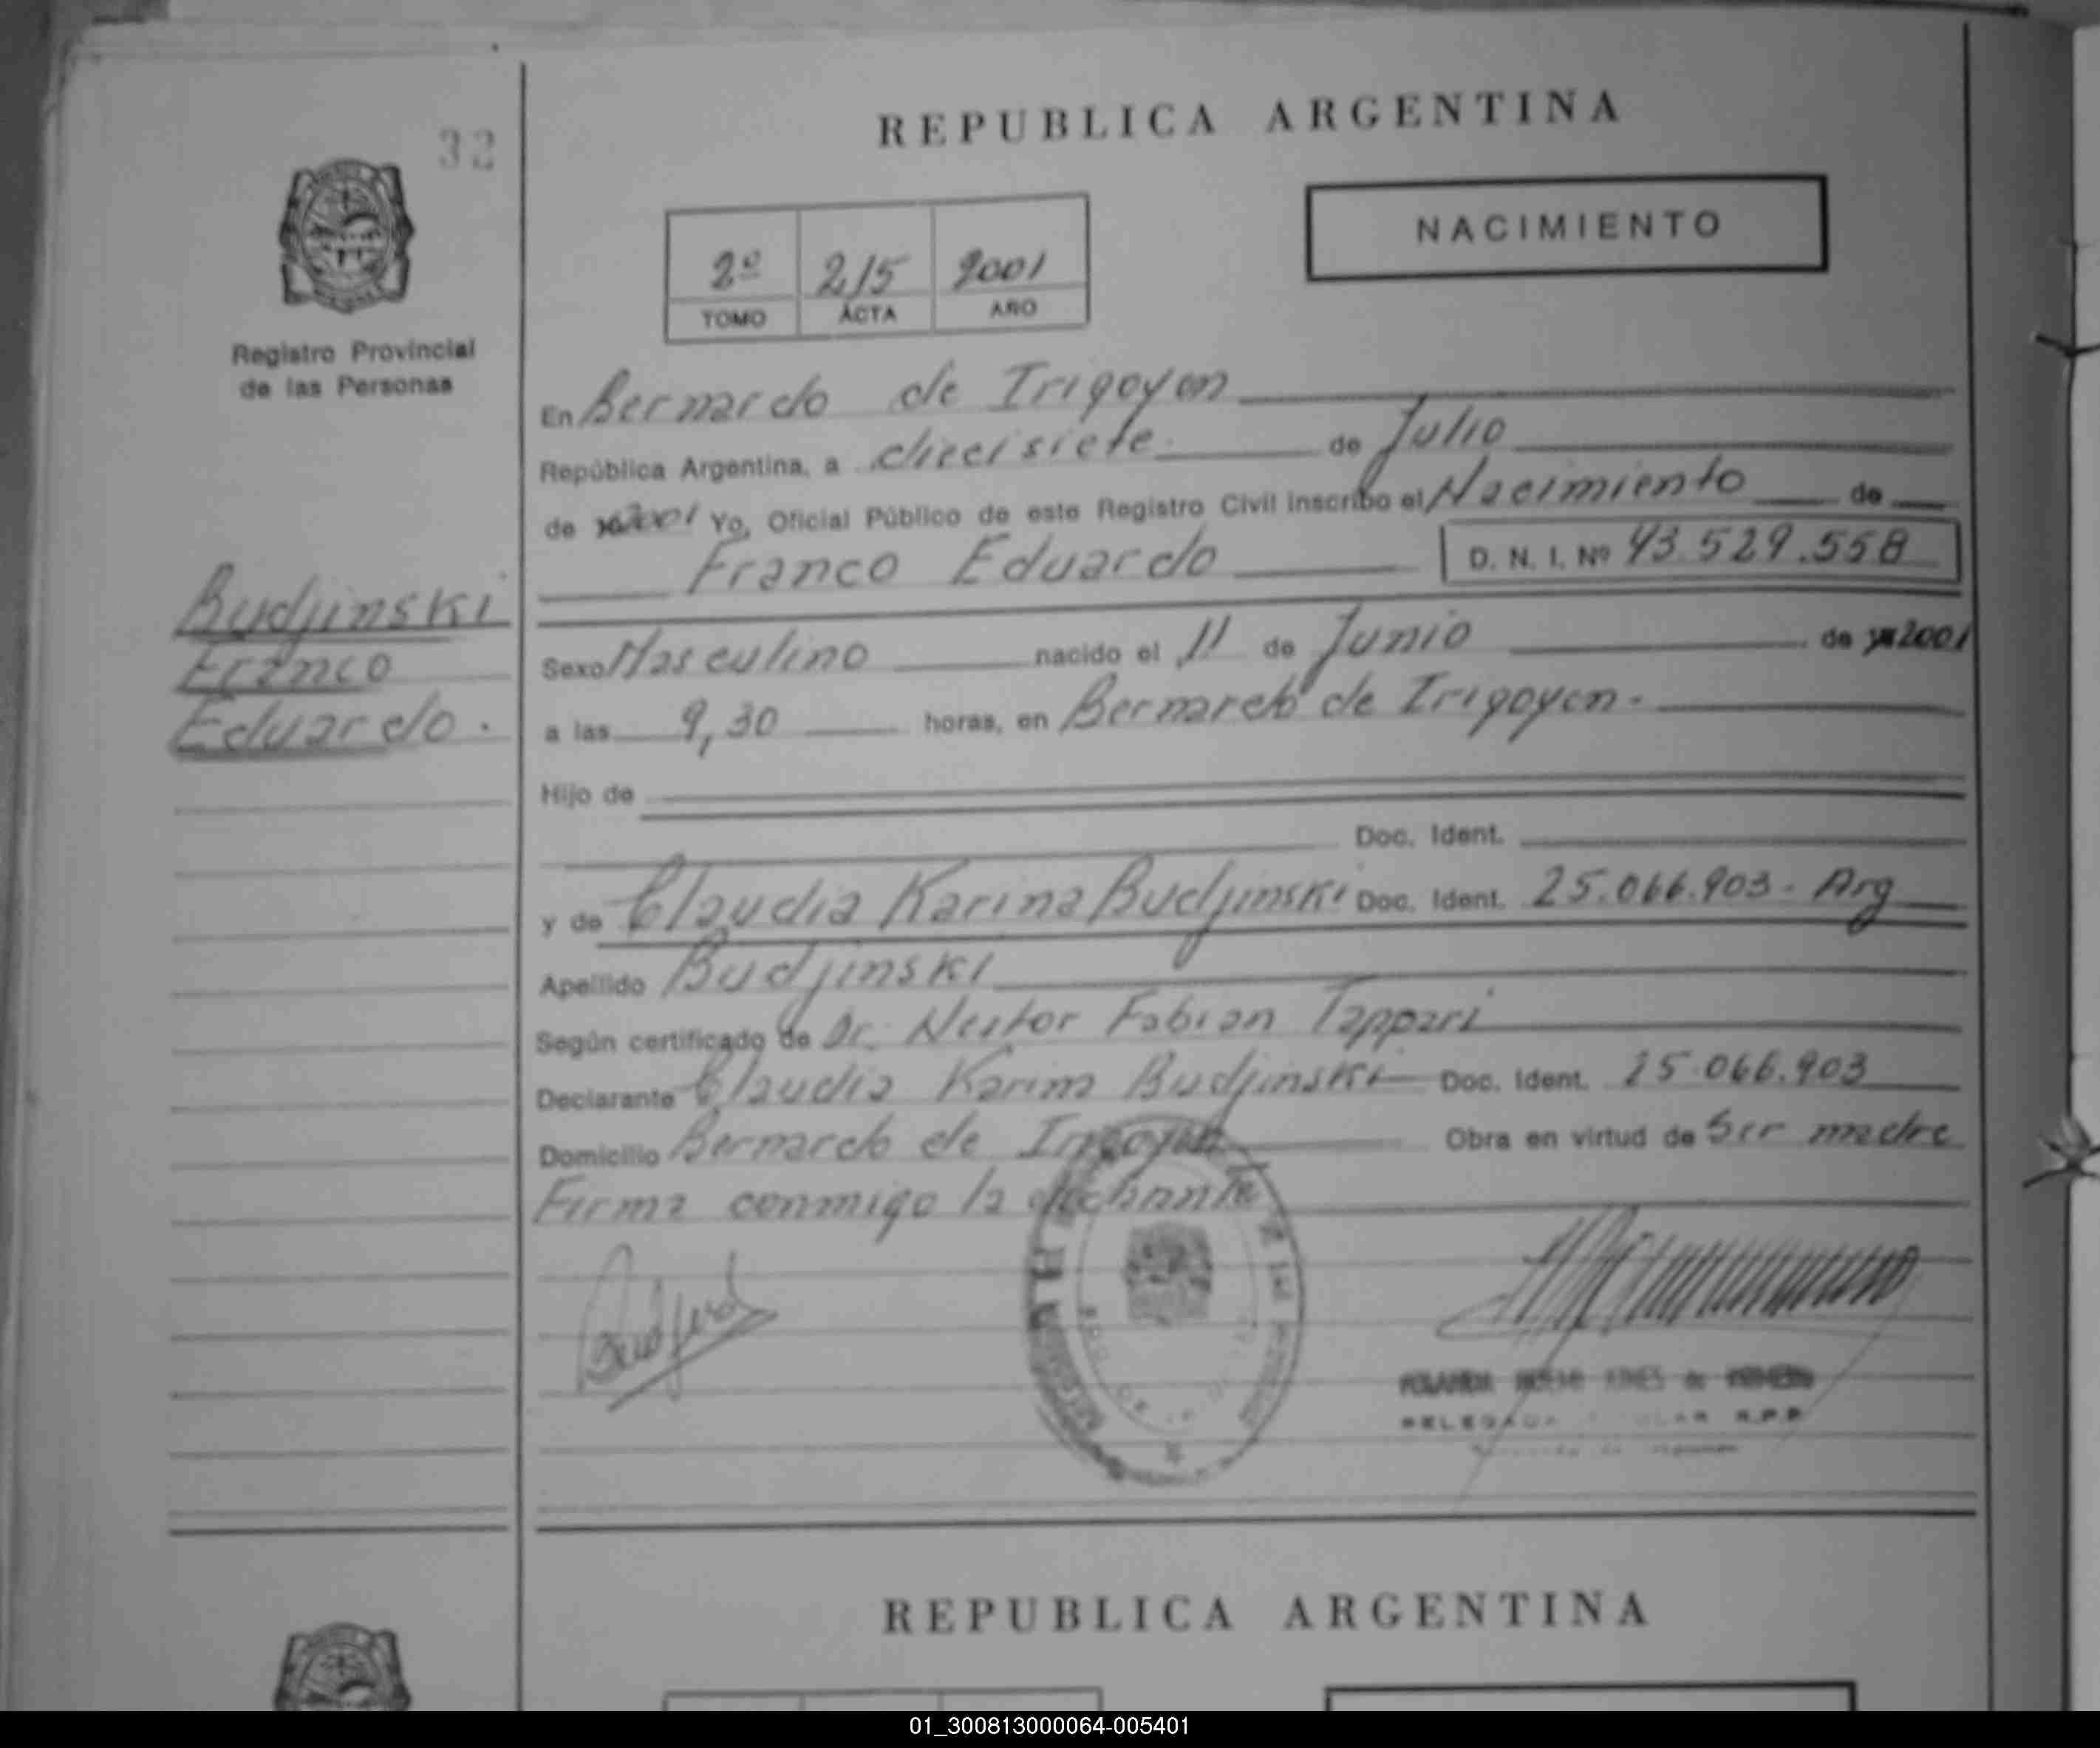 REPUBLICA ARGENTINA
32
NACIMIENTO
2º 215 2001
TOMO ACTA AÑO
Registro Provincial
de las Personas
En Bernardo de Irigoyen
República Argentina, a diecisiete de Julio
de 2001 Yo, Oficial Público de este Registro Civil inscribo el Nacimiento de
Franco Eduardo D. N. I. Nº 43.529.558
Budjinski
Franco
Eduardo.
Sexo Masculino nacido el 11 de Junio de 2001
a las 9,30 horas, en Bernardo de Irigoyen.
Hijo de
Doc. Ident.
y de Claudia Karina Budjinski Doc. Ident. 25.066.903 - Arg
Apellido Budjinski
Según certificado de Dr. Nestor Fabian Tappari
Declarante Claudia Karina Budjinski Doc. Ident. 25.066.903
Domicilio Bernardo de Irigoyen Obra en virtud de Ser madre
Firma conmigo la declarante
REPUBLICA ARGENTINA
01_300813000064-005401